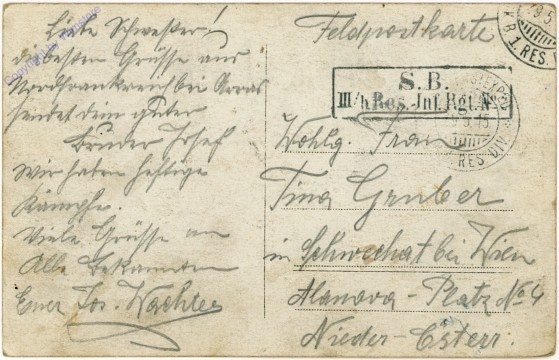 Liebe Schwester!
die besten Grüsse aus
Nordfrankreich bei Arras
sendet dein guter
Bruder Josef
Wir haben heftige
Kämpfe.
Viele Grüsse an
Alle Bekannten
Euer Jos. Wachter
Feldpostkarte
S.B.
III/b. Res. Inf. Rgt. No
K.B. 1. RES.
RES. DIV.
Wohlg. Frau
Tina Gruber
in Schwechat bei Wien
Alanova-Platz No 4
Nieder-Österr.